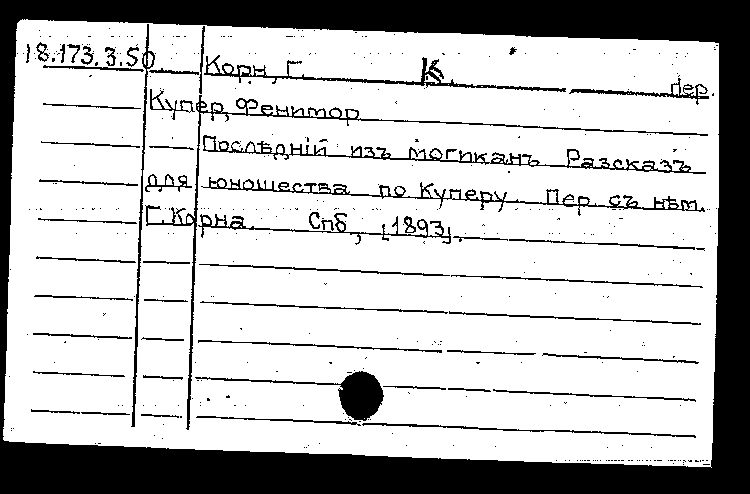 18.173.3.50. Корн, Г. К. пер.
Купер, Фенимор
Последнiй изъ могиканъ Разсказъ
для юношества по Куперу. Пер съ нѣм.
Г. Корна. Спб, [1893].